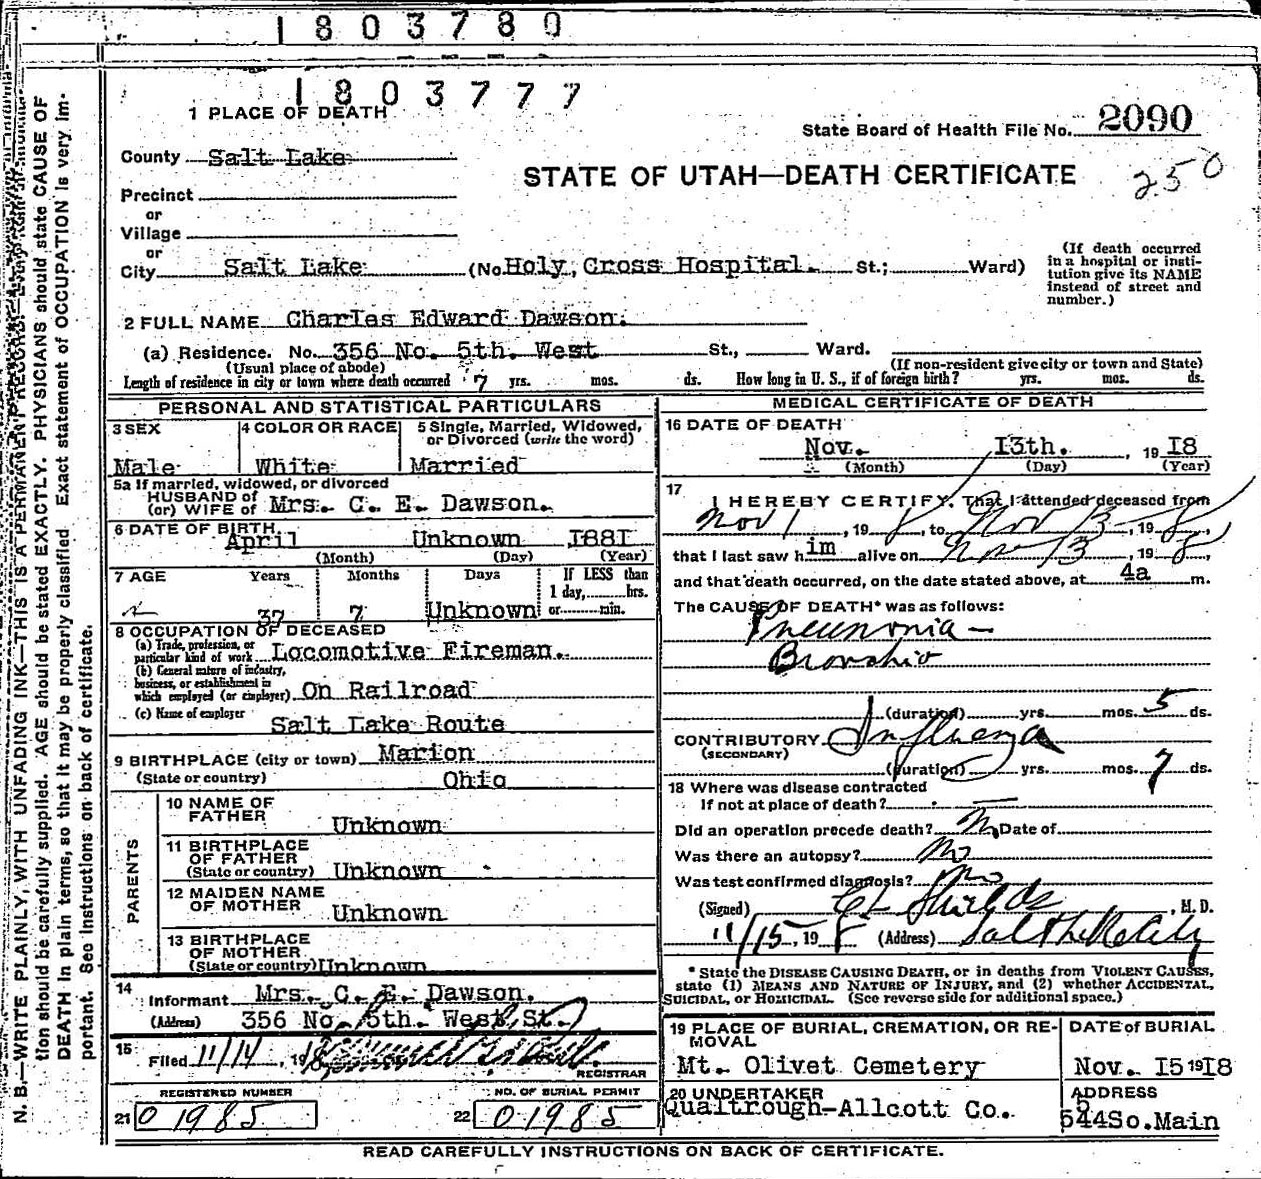 1803780
1803777
1 PLACE OF DEATH
State Board of Health File No. 2090
County Salt Lake
STATE OF UTAH—DEATH CERTIFICATE
250
Precinct
or
Village
or
City Salt Lake (No. Holy Cross Hospital. St.; Ward)
(If death occurred in a hospital or insti-
tution give its NAME
instead of street and
number.)
2 FULL NAME Charles Edward Dawson.
(a) Residence. No. 356 No. 5th. West St., Ward.
(Usual place of abode) (If non-resident give city or town and State)
Length of residence in city or town where death occurred 7 yrs. mos. ds. How long in U. S., if of foreign birth? yrs. mos. ds.
PERSONAL AND STATISTICAL PARTICULARS
3 SEX 4 COLOR OR RACE 5 Single, Married, Widowed,
or Divorced (write the word)
Male White Married
5a If married, widowed, or divorced
HUSBAND of
(or) WIFE of Mrs. C. E. Dawson.
6 DATE OF BIRTH
April Unknown I88I
(Month) (Day) (Year)
7 AGE Years Months Days If LESS than
1 day, hrs.
37 7 Unknown or min.
8 OCCUPATION OF DECEASED
(a) Trade, profession, or
particular kind of work Locomotive Fireman.
(b) General nature of industry,
business, or establishment in
which employed (or employer) On Railroad
(c) Name of employer
Salt Lake Route
9 BIRTHPLACE (city or town) Marion
(State or country) Ohio
PARENTS
10 NAME OF
FATHER Unknown
11 BIRTHPLACE
OF FATHER
(State or country) Unknown
12 MAIDEN NAME
OF MOTHER Unknown
13 BIRTHPLACE
OF MOTHER
(State or country) Unknown
14
Informant Mrs. C. E. Dawson.
(Address) 356 No. 5th. West St.
15
Filed 11/14, 19 18
REGISTRAR
REGISTERED NUMBER NO. OF BURIAL PERMIT
21 01985 22 01985
MEDICAL CERTIFICATE OF DEATH
16 DATE OF DEATH
Nov. I3th. , 19 I8
(Month) (Day) (Year)
17
I HEREBY CERTIFY, That I attended deceased from
Nov 1, 19 8, to Nov 13, 19 8,
that I last saw him alive on Nov 13, 19 8,
and that death occurred, on the date stated above, at 4a m.
The CAUSE OF DEATH* was as follows:
Pneumonia—
Broncho
(duration) yrs. mos. 5 ds.
CONTRIBUTORY Influenza
(SECONDARY)
(duration) yrs. mos. 7 ds.
18 Where was disease contracted
If not at place of death? —
Did an operation precede death? No Date of
Was there an autopsy? No
Was test confirmed diagnosis? No
(Signed) Shields, M. D.
11/15, 19 8 (Address) Salt Lake City
* State the DISEASE CAUSING DEATH, or in deaths from VIOLENT CAUSES,
state (1) MEANS AND NATURE OF INJURY, and (2) whether ACCIDENTAL,
SUICIDAL, or HOMICIDAL. (See reverse side for additional space.)
19 PLACE OF BURIAL, CREMATION, OR RE-
MOVAL
DATE of BURIAL
Mt. Olivet Cemetery Nov. I5 19 I8
20 UNDERTAKER ADDRESS
Qualtrough-Allcott Co. 544 So. Main
READ CAREFULLY INSTRUCTIONS ON BACK OF CERTIFICATE.
N. B.—WRITE PLAINLY, WITH UNFADING INK—THIS IS A PERMANENT RECORD.
tion should be carefully supplied. AGE should be stated EXACTLY. PHYSICIANS should state CAUSE OF
DEATH in plain terms, so that it may be properly classified. Exact statement of OCCUPATION is very im-
portant. See Instructions on back of certificate.